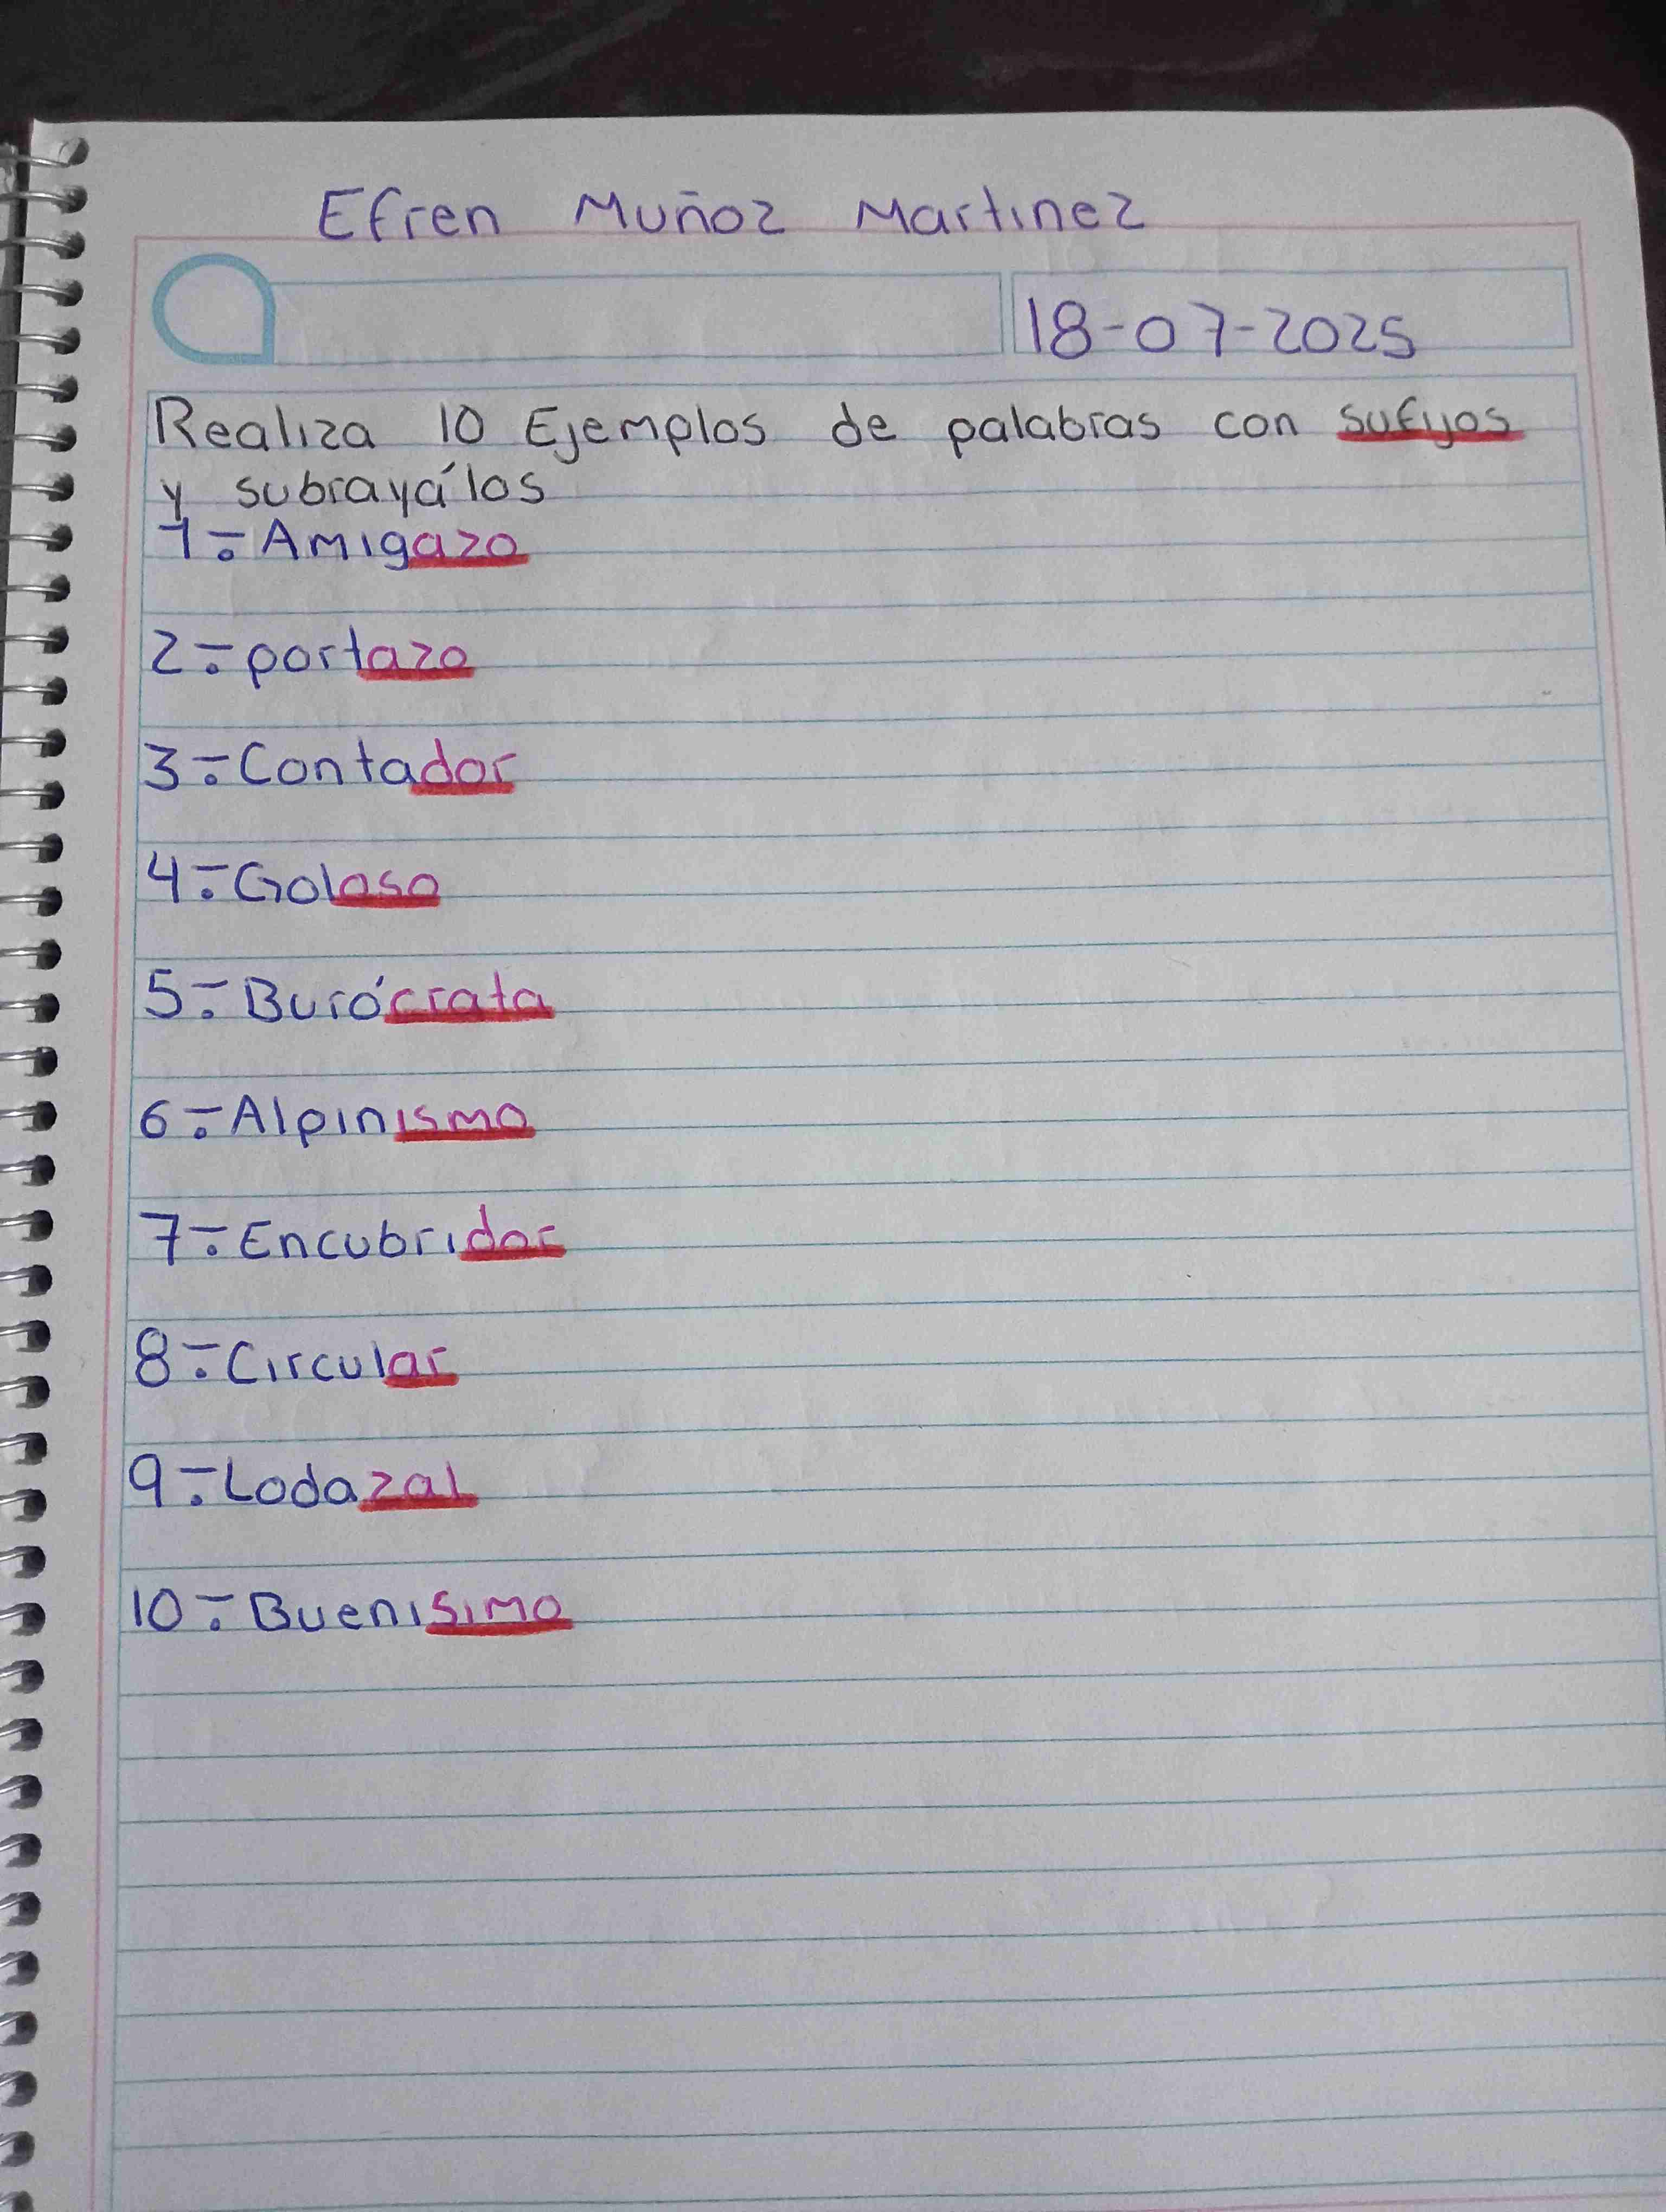 Efren Muñoz Martinez
18-07-2025
Realiza 10 Ejemplos de palabras con sufijos
y subrayálos
1.- Amigazo
2.- portazo
3.- Contador
4.- Goloso
5.- Burócrata
6.- Alpinismo
7.- Encubridor
8.- Circular
9.- Lodazal
10.- Buenisimo